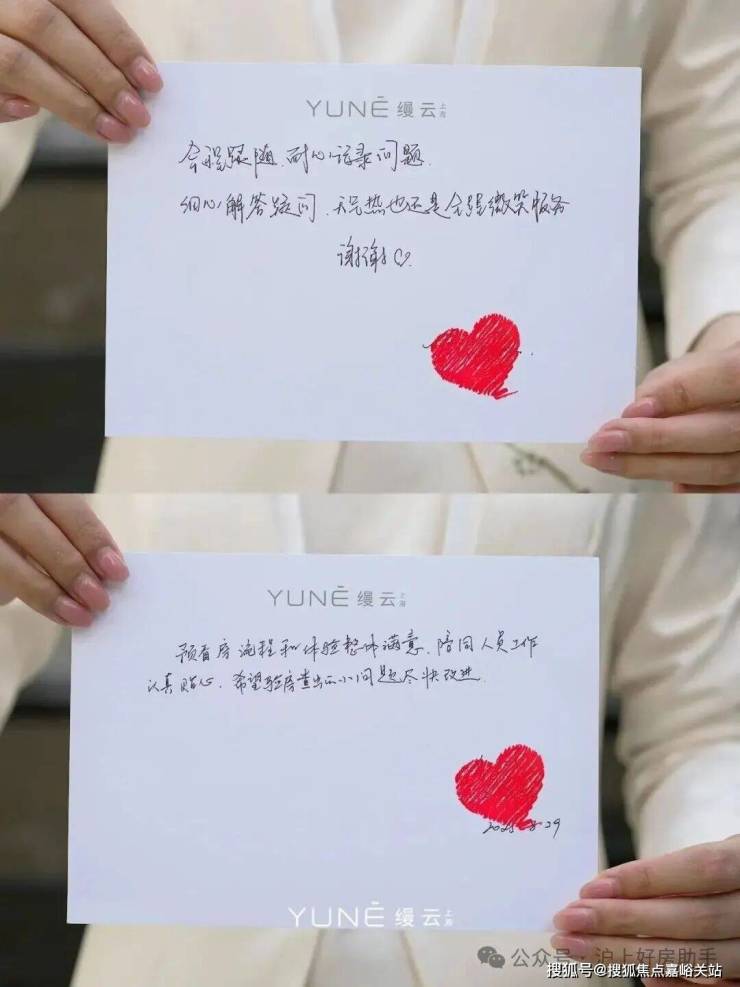 YUNĒ 缦云 上海
全程跟随、耐心记录问题.
细心解答疑问、天气热也还是全程微笑服务
谢谢♡.
YUNĒ 缦云 上海
预看房流程和体验整体满意、陪同人员工作
认真贴心、希望验房查出的小问题尽快改进.
2025-8-29
YUNĒ 缦云 上海
公众号·沪上好房助手
搜狐号@搜狐焦点嘉峪关站